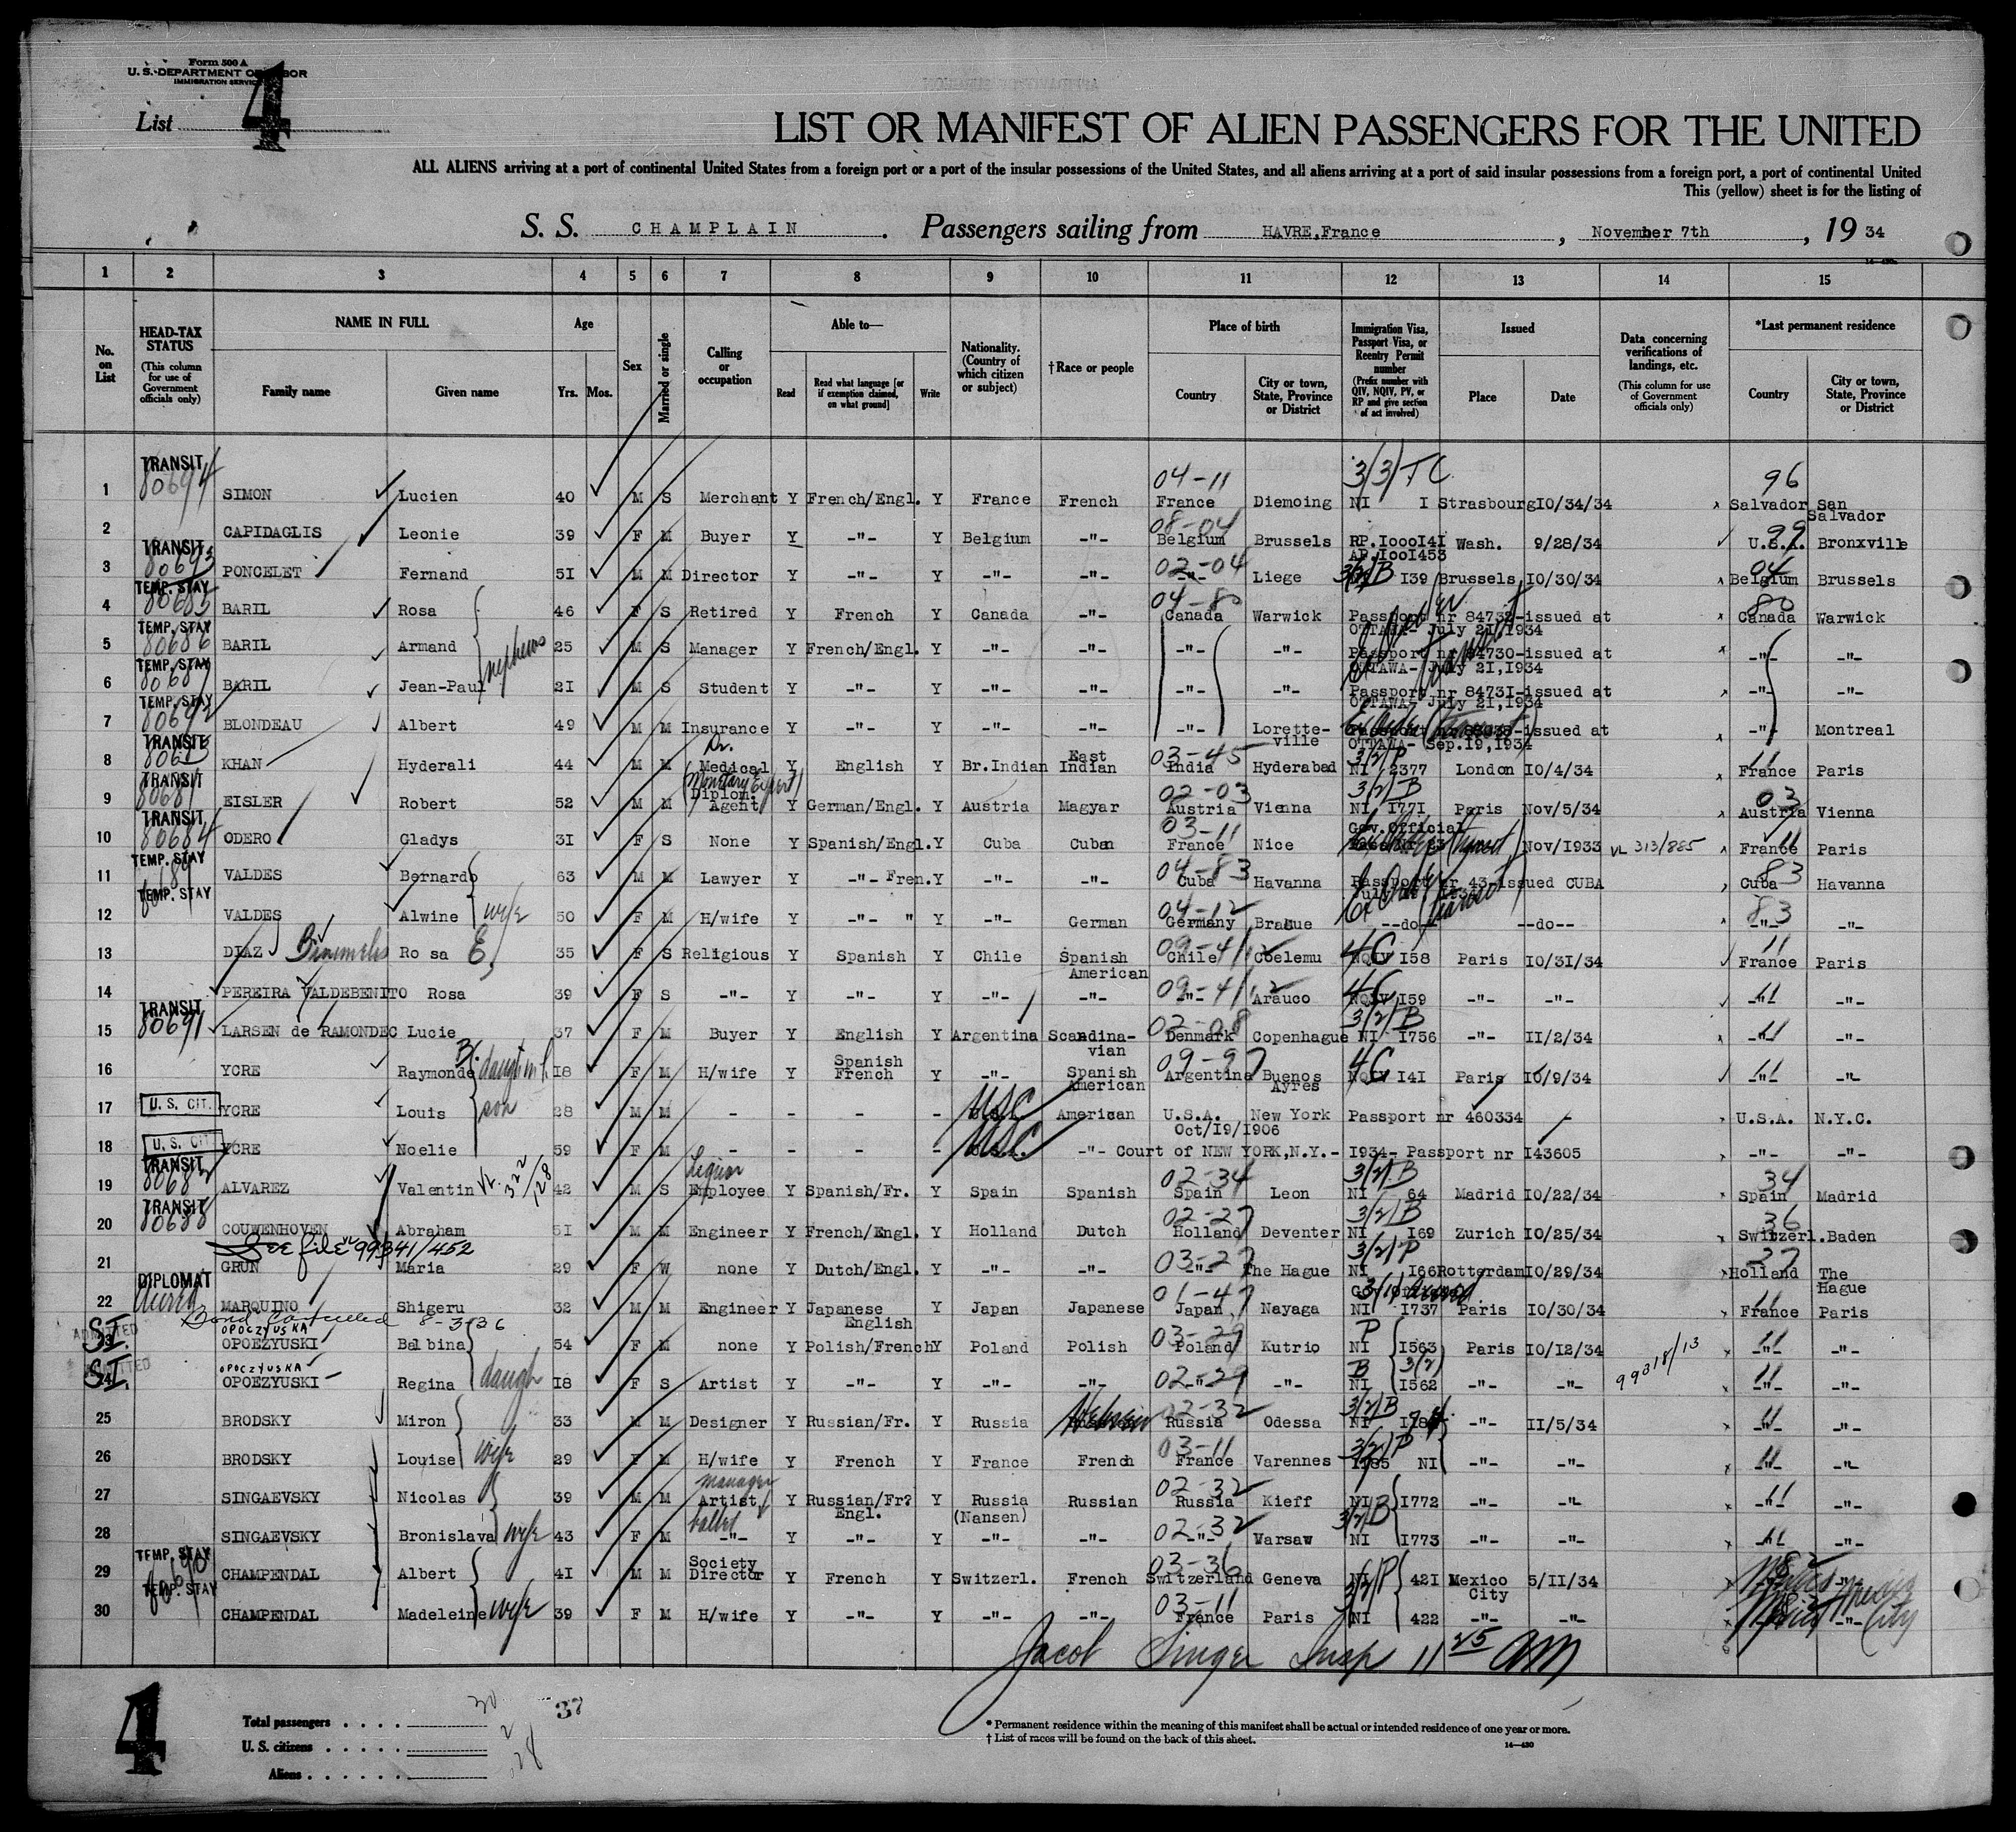 Form 500 A
U. S. DEPARTMENT OF LABOR
IMMIGRATION SERVICE
List 4
LIST OR MANIFEST OF ALIEN PASSENGERS FOR THE UNITED
ALL ALIENS arriving at a port of continental United States from a foreign port or a port of the insular possessions of the United States, and all aliens arriving at a port of said insular possessions from a foreign port, a port of continental United
This (yellow) sheet is for the listing of
S. S. CHAMPLAIN . Passengers sailing from HAVRE,France , November 7th , 19 34
14-430
1 2 3 4 5 6 7 8 9 10 11 12 13 14 15
No. on List
HEAD-TAX STATUS (This column for use of Government officials only)
NAME IN FULL Family name Given name
Age Yrs. Mos.
Sex
Married or single
Calling or occupation
Able to— Read Read what language [or if exemption claimed, on what ground] Write
Nationality. (Country of which citizen or subject)
†Race or people
Place of birth Country City or town, State, Province or District
Immigration Visa, Passport Visa, or Reentry Permit number (Prefix number with QIV, NQIV, PV, or RP and give section of act involved)
Issued Place Date
Data concerning verifications of landings, etc. (This column for use of Government officials only)
*Last permanent residence Country City or town, State, Province or District
TRANSIT 80694 04-11 3/3/TC 96
1 SIMON Lucien 40 M S Merchant Y French/Engl. Y France French France Diemoing NI I Strasbourg I0/34/34 Salvador San Salvador
08-04 99
2 CAPIDAGLIS Leonie 39 F M Buyer Y -"- Y Belgium -"- Belgium Brussels RP.I000I4I AP.I00I453 Wash. 9/28/34 U.S.A. Bronxville
TRANSIT 80693 02-04 3/2/B 04
3 PONCELET Fernand 5I M M Director Y -"- Y -"- -"- -"- Liege I39 Brussels I0/30/34 Belgium Brussels
TEMP. STAY 80685 04-80 80
4 BARIL Rosa 46 F S Retired Y French Y Canada -"- Canada Warwick Passport nr 84732-issued at OTTAWA- July 2I,I934 Canada Warwick
TEMP. STAY 80686 nephews
5 BARIL Armand 25 M S Manager Y French/Engl. Y -"- -"- -"- -"- Passport nr 84730-issued at OTTAWA- July 2I,I934 -"- -"-
TEMP. STAY 80687
6 BARIL Jean-Paul 2I M S Student Y -"- Y -"- -"- -"- -"- Passport nr 8473I-issued at OTTAWA- July 2I,I934 -"- -"-
TEMP. STAY 80692
7 BLONDEAU Albert 49 M M Insurance Y -"- Y -"- -"- -"- Lorette-ville issued at OTTAWA- Sep.I9,I934 -"- Montreal
TRANSIT Dr. 03-45 3/2/P 11
8 KHAN Hyderali 44 M M Medical Y English Y Br.Indian East Indian India Hyderabad NI 2377 London I0/4/34 France Paris
TRANSIT 80681 (Monetary Expert) 02-03 3/2/B 03
9 EISLER Robert 52 M M Diplom. Agent Y German/Engl. Y Austria Magyar Austria Vienna NI I77I Paris Nov/5/34 Austria Vienna
TRANSIT 80684 03-11 11
10 ODERO Gladys 3I F S None Y Spanish/Engl. Y Cuba Cuban France Nice Gov.Official Nov/I933 VL 313/885 France Paris
TEMP. STAY 04-83 83
11 VALDES Bernardo 63 M M Lawyer Y -"- Fren. Y -"- -"- Cuba Havanna Passport nr 43-issued CUBA Cuba Havanna
TEMP. STAY wife 04-12 83
12 VALDES Alwine 50 F M H/wife Y -"- " Y -"- German Germany Brague --do-- --do-- -"- -"-
09-41 4C 11
13 DIAZ Binimelis Rosa E. 35 F S Religious Y Spanish Y Chile Spanish American Chile Coelemu NQIV I58 Paris I0/3I/34 France Paris
09-41 4C 11
14 PEREIRA VALDEBENITO Rosa 39 F S -"- Y -"- Y -"- -"- -"- Arauco NQIV I59 -"- -"- -"- -"-
TRANSIT 80691 02-08 3/2/B 11
15 LARSEN de RAMONDEC Lucie 37 F M Buyer Y English Y Argentina Scandina-vian Denmark Copenhague NI I756 -"- II/2/34 -"- -"-
B. daught in l. 09-97 4C 11
16 YCRE Raymonde I8 F M H/wife Y Spanish French Y -"- Spanish American Argentina Buenos Ayres NQIV I4I Paris I0/9/34 -"- -"-
U. S. CIT. son USC
17 YCRE Louis 28 M M - - - - U.S.A. American U.S.A. New York Passport nr 460334 - U.S.A. N.Y.C.
Oct/I9/I906
U. S. CIT. USC
18 YCRE Noelie 59 F M - - - - U.S.A. -"- Court of NEW YORK,N.Y.- I934- Passport nr I43605 -"- -"-
TRANSIT 80682 Liquor 02-34 3/2/B 34
19 ALVAREZ Valentin 42 M S Employee Y Spanish/Fr. Y Spain Spanish Spain Leon NI 64 Madrid I0/22/34 Spain Madrid
TRANSIT 80688 02-27 3/2/B 36
20 COUWENHOVEN Abraham 5I M M Engineer Y French/Engl. Y Holland Dutch Holland Deventer NI I69 Zurich I0/25/34 Switzerl. Baden
See file 99341/452 03-27 3/2/P 27
21 GRUN Maria 29 F W none Y Dutch/Engl. Y -"- -"- -"- The Hague NI I66 Rotterdam I0/29/34 Holland The Hague
DIPLOMAT 01-47 11
22 MARQUINO Shigeru 32 M M Engineer Y Japanese English Y Japan Japanese Japan Nayaga NI I737 Paris I0/30/34 France Paris
Bond Cancelled 8-3-36
S.I. ADMITTED OPOCZYUSKA 03-29 P 11
23 OPOEZYUSKI Balbina 54 F M none Y Polish/French Y Poland Polish Poland Kutrio NI I563 Paris I0/12/34 99318/13 -"- -"-
S.I. ADMITTED OPOCZYUSKA daugh 02-29 B 3/2 11
24 OPOEZYUSKI Regina I8 F S Artist Y -"- Y -"- -"- -"- -"- NI I562 -"- -"- -"- -"-
02-32 3/2/B 11
25 BRODSKY Miron 33 M M Designer Y Russian/Fr. Y Russia Hebrew Russia Odessa NI -"- II/5/34 -"- -"-
wife 03-11 3/2/P 11
26 BRODSKY Louise 29 F M H/wife Y French Y France French France Varennes II85 NI -"- -"- -"- -"-
manager 02-32 11
27 SINGAEVSKY Nicolas 39 M M Artist Y Russian/Fr? Engl. Y Russia (Nansen) Russian Russia Kieff NI I772 -"- -"- -"- -"-
wife ballet 02-32 3/2/B 11
28 SINGAEVSKY Bronislava 43 F M -"- Y -"- Y -"- -"- -"- Warsaw NI I773 -"- -"- -"- -"-
TEMP. STAY 03-36 82
29 CHAMPENDAL Albert 4I M M Society Director Y French Y Switzerl. French Switzerland Geneva NI 42I Mexico City 5/II/34 -"-
TEMP. STAY wife 03-11 3/2/P Mexico City
30 CHAMPENDAL Madeleine 39 F M H/wife Y -"- Y -"- -"- France Paris NI 422 -"- -"- -"-
Jacob Singer Insp 11 25 am
4
Total passengers . . . . 30
37
U. S. citizens . . . . . 2
Aliens . . . . . . 28
* Permanent residence within the meaning of this manifest shall be actual or intended residence of one year or more.
† List of races will be found on the back of this sheet.
14—430